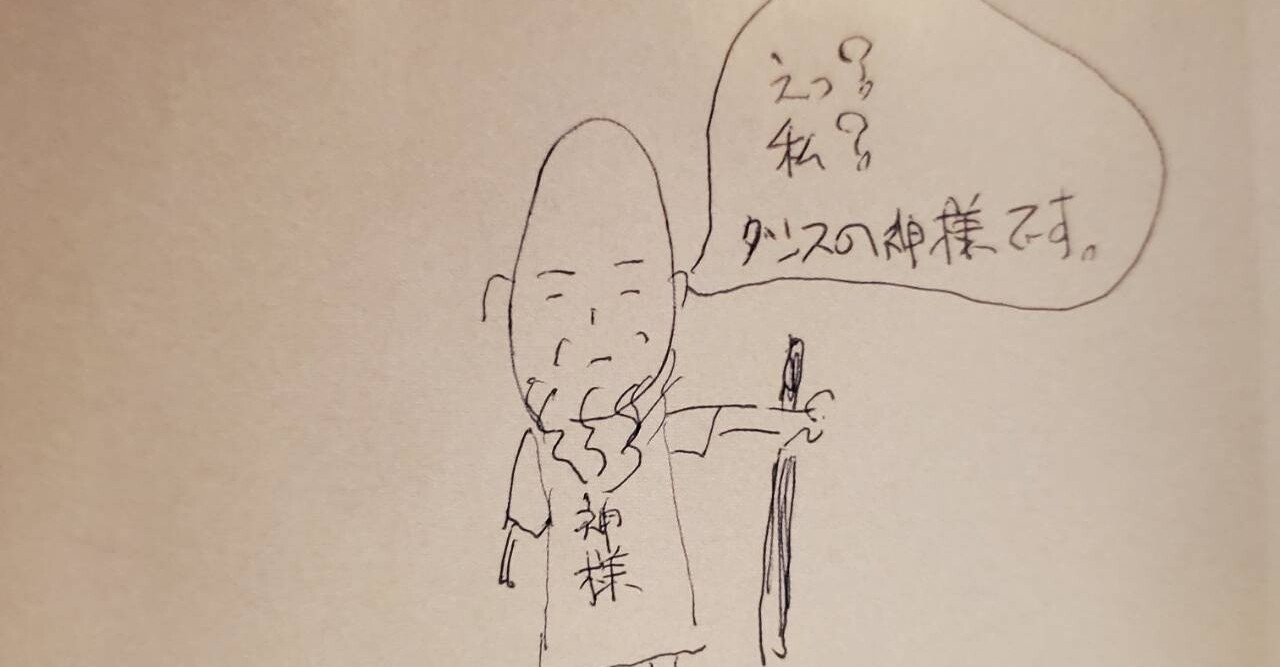 えっ?
私?
ダンスの神様です。
神様